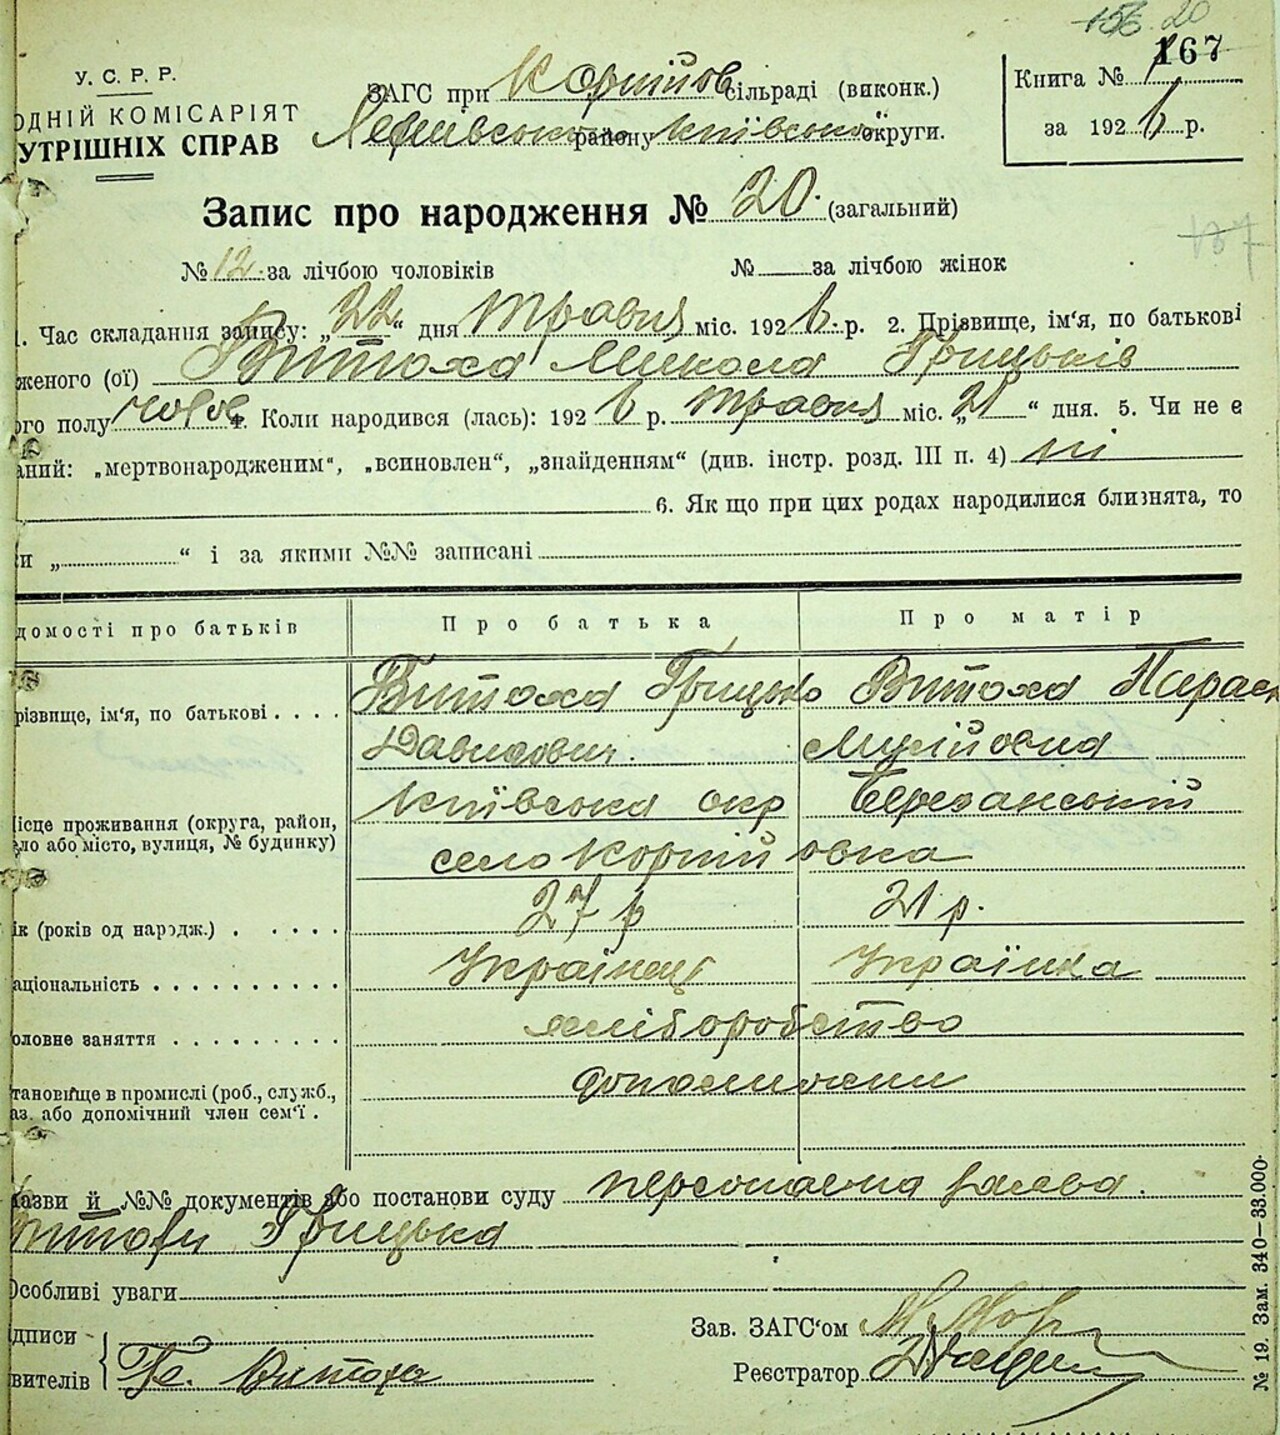 20
167
У. С. Р. Р.
ОДНІЙ КОМІСАРІЯТ
УТРІШНІХ СПРАВ
ЗАГС при Корнійов сільраді (виконк.)
району Київської округи.
Книга №
за 1926 р.
Запис про народження № 20. (загальний)
№ 12. за лічбою чоловіків № за лічбою жінок
1. Час складання запису: „22“ дня Травня міс. 1926. р. 2. Прізвище, ім'я, по батькові
женого (ої) Витоха Микола Грицьків
ого полу чолов. 4. Коли народився (лась): 1926 р. Травня міс. „21“ дня. 5. Чи не є
аний: „мертвонародженим“, „всиновлен“, „знайденням“ (див. інстр. розд. III п. 4) ні
6. Як що при цих родах народилися близнята, то
ки „ “ і за якими №№ записані
домості про батьків Про батька Про матір
різвище, ім'я, по батькові . . . . Витоха Грицько Витоха Парас
Давидович. Мусійовна
ісце проживання (округа, район,
ло або місто, вулиця, № будинку)
Київська окр Березанський
село Корнійовка
ік (років од народж.) . . . . . 27 р 21 р.
аціональність . . . . . . . . . . Українец Українка
оловне заняття . . . . . . . . . хліборобство
тановище в промислі (роб., служб.,
аз. або допомічний член сем'ї .
назви й №№ документів або постанови суду персональна заява.
Витохи Грицька
Особливі уваги
дписи
вителів Гр. Витоха
Зав. ЗАГС'ом
Реєстратор
№ 19. Зам. 340—33.000.